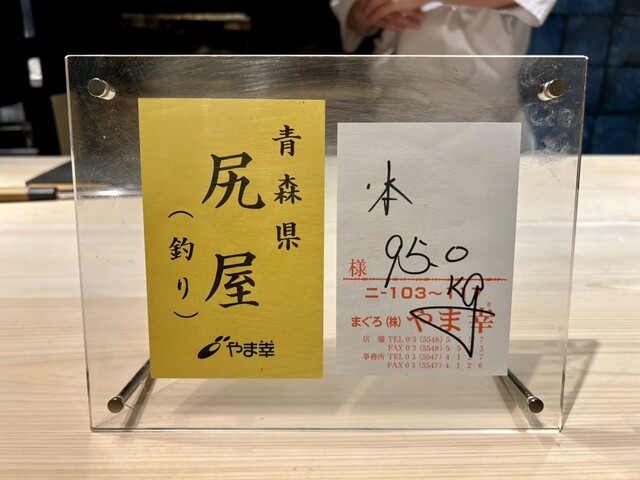 青森県
尻屋
(釣り)
やま幸
本
95.0
KG
様
ニ-103~
まぐろ(株) やま幸
店舗 TEL 03 (5548)
FAX 03 (5548)
事務所 TEL 03 (5547)
FAX 03 (5547) 4126